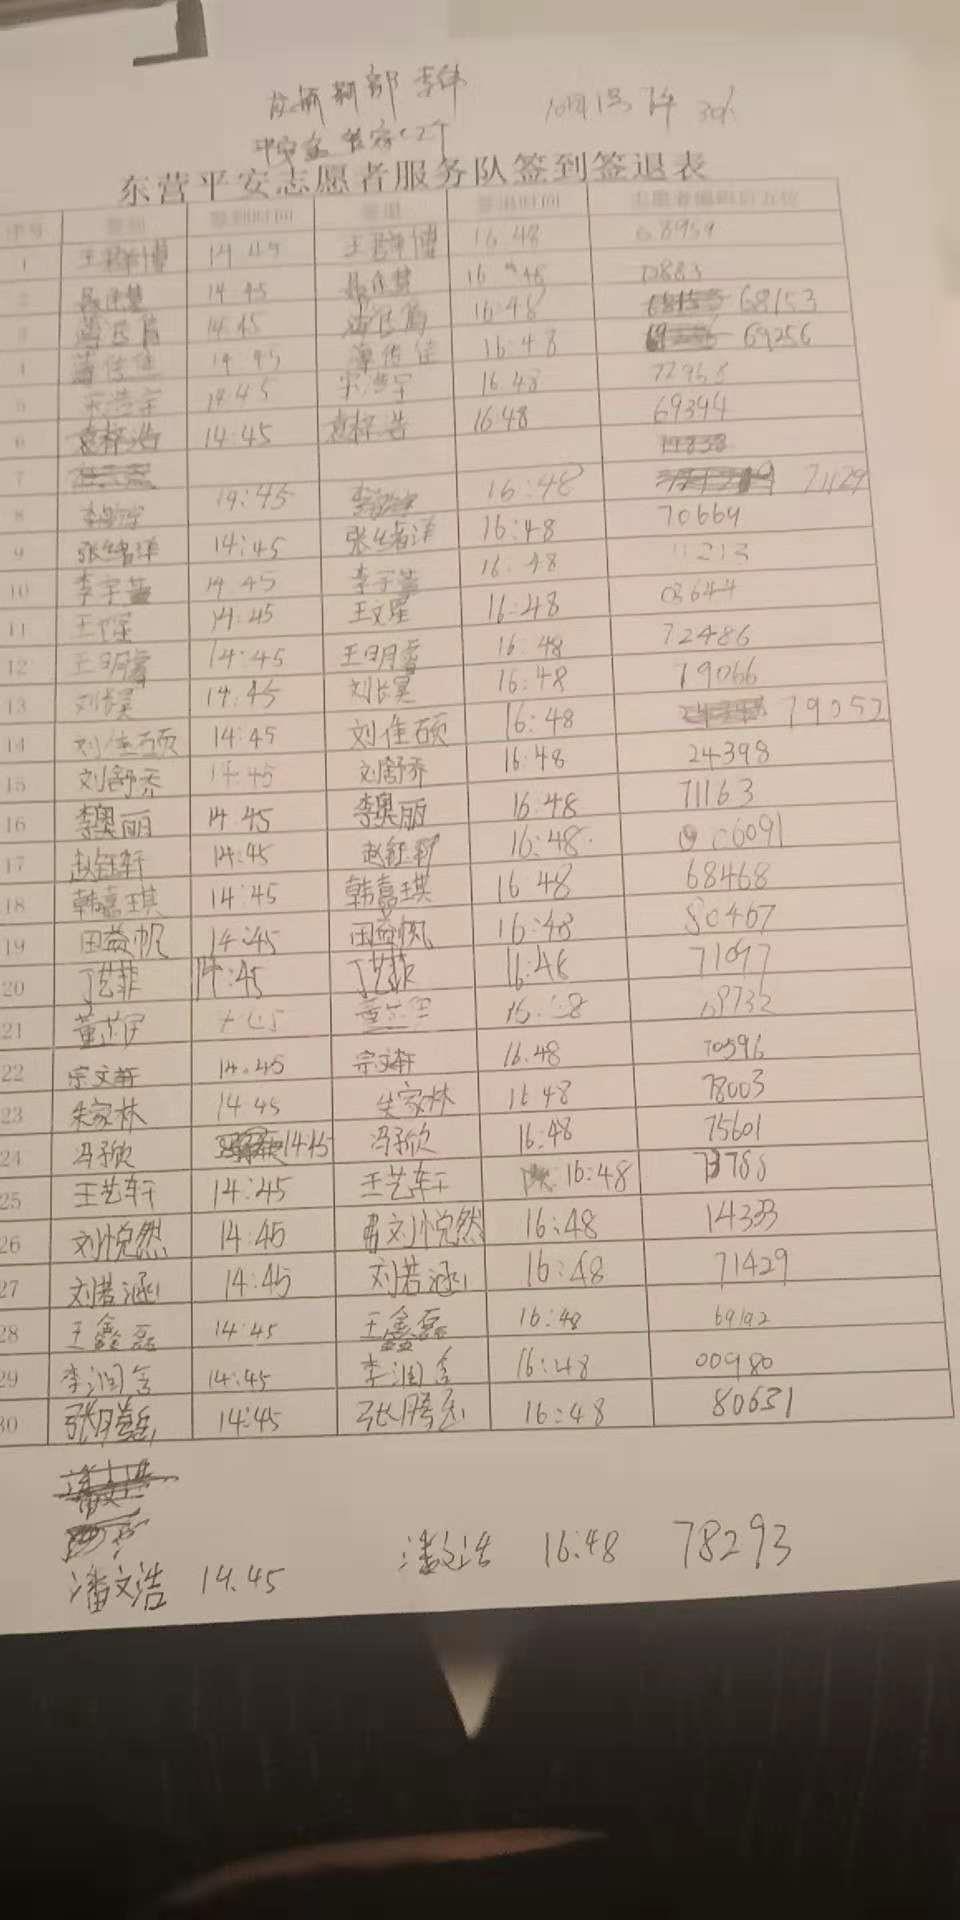 李伟
10月1号下午
东营平安志愿者服务队签到签退表
序号 签到时间 签退 签退时间 志愿者编码后五位
1 14 45 16 48 68959
2 14 45 16 48
3 14 45 16:48 68153
4 14 45 16:48 69256
5 宋浩宇 14:45 宋浩宇 16 48
6 袁梓浩 14:45 袁梓浩 16:48 69344
7
8 14:45 16:48 71129
9 张绪洋 14:45 张绪洋 16:48 70664
10 李宇 14 45 李宇 16:48
11 王文星 14:45 王文星 16:48 03644
12 王明 14:45 王明 16:48 72486
13 刘长昊 14:45 刘长昊 16:48 79066
14 刘佳硕 14:45 刘佳硕 16:48 79052
15 刘舒乔 14:45 刘舒乔 16:48 24398
16 李奥丽 14:45 李奥丽 16:48 71163
17 赵钰轩 14:45 赵钰轩 16:48 06091
18 韩嘉琪 14:45 韩嘉琪 16 48 68468
19 田益帆 14:45 田益帆 16:48 80467
20 丁艺菲 14:45 丁艺菲 16:48 71097
21 董芷伊 69732
22 宗文轩 14.45 宗文轩 16.48 70596
23 朱家林 14 45 朱家林 16 48 78003
24 冯予欣 14:45 冯予欣 16:48 75601
25 王艺轩 14:45 王艺轩 16:48 73788
26 刘悦然 14:45 刘悦然 16:48 14333
27 刘若涵 14:45 刘若涵 16:48 71429
28 王鑫磊 14:45 王鑫磊 16:48 69192
29 李润 14:45 李润 16:48 00980
30 张腾岳 14:45 张腾岳 16:48 80631
潘文浩 14.45 潘文浩 16:48 78293